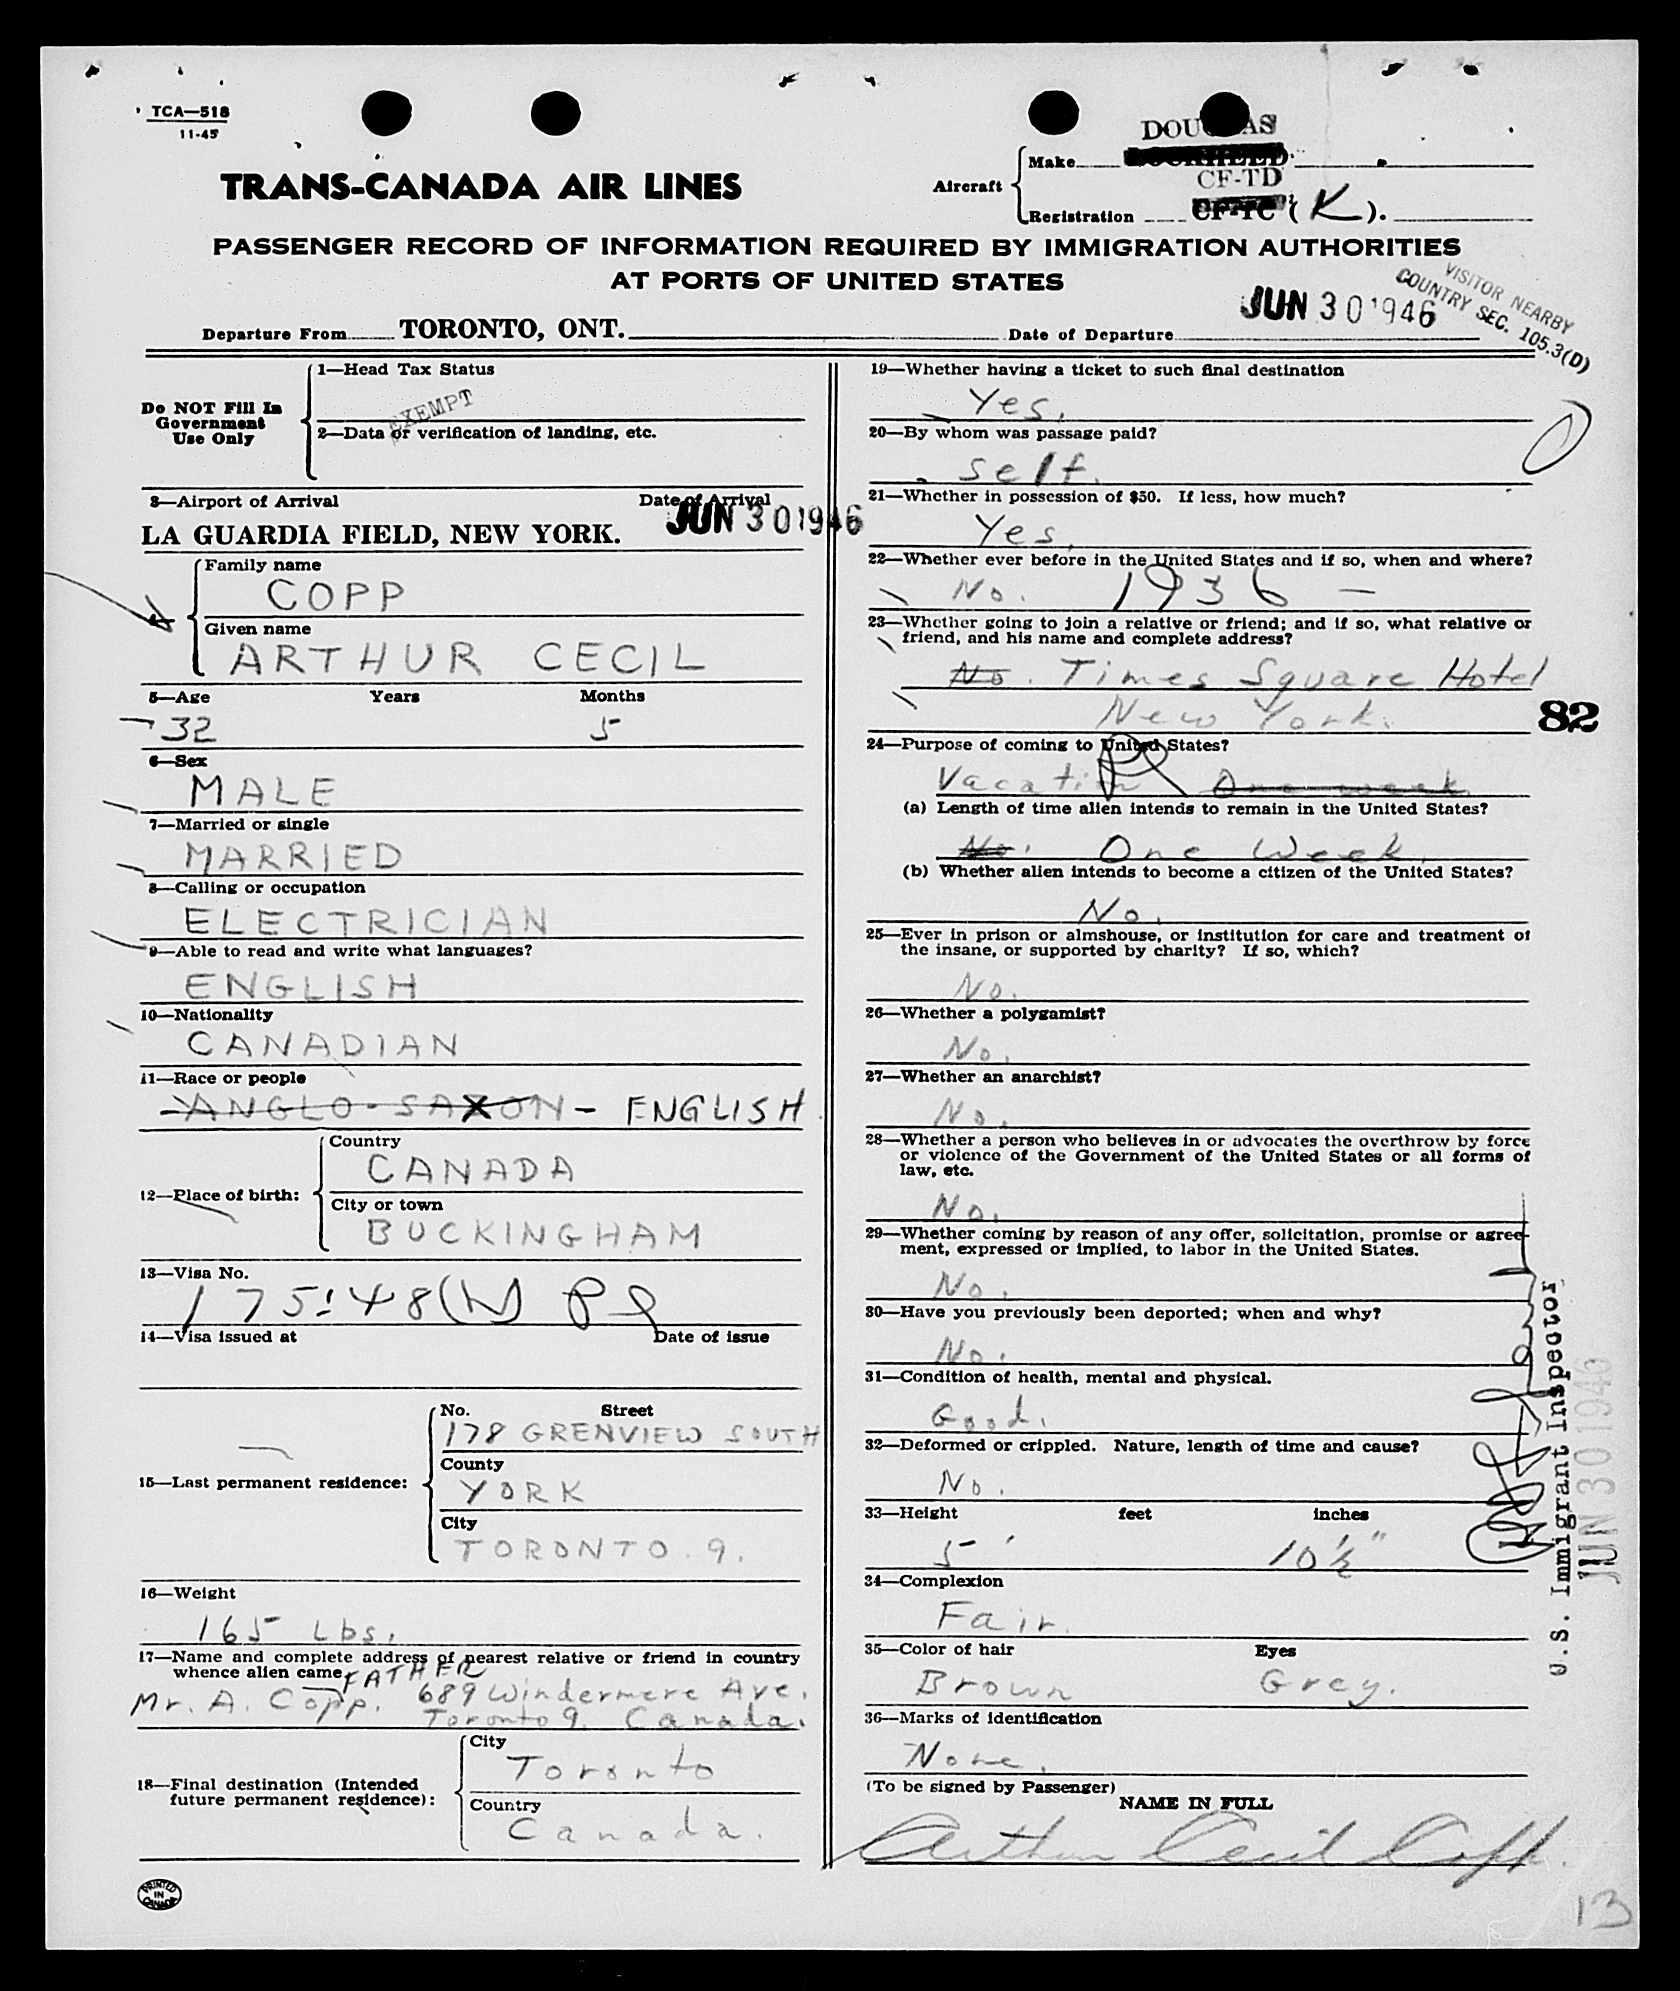 TCA—518
11-45
DOUGLAS
TRANS-CANADA AIR LINES
Aircraft
Make
CF-TD
Registration CF-TC (K).
PASSENGER RECORD OF INFORMATION REQUIRED BY IMMIGRATION AUTHORITIES
AT PORTS OF UNITED STATES
VISITOR NEARBY
COUNTRY SEC. 105.3(D)
Departure From TORONTO, ONT. Date of Departure JUN 30 1946
Do NOT Fill In
Government
Use Only
1—Head Tax Status
EXEMPT
2—Data or verification of landing, etc.
3—Airport of Arrival Date of Arrival
LA GUARDIA FIELD, NEW YORK. JUN 30 1946
Family name
COPP
Given name
ARTHUR CECIL
5—Age Years Months
32 5
6—Sex
MALE
7—Married or single
MARRIED
8—Calling or occupation
ELECTRICIAN
9—Able to read and write what languages?
ENGLISH
10—Nationality
CANADIAN
11—Race or people
ANGLO-SAXON - ENGLISH
12—Place of birth:
Country
CANADA
City or town
BUCKINGHAM
13—Visa No.
175.48
14—Visa issued at Date of issue
15—Last permanent residence:
No. Street
178 GRENVIEW SOUTH
County
YORK
City
TORONTO. 9.
16—Weight
165 Lbs.
17—Name and complete address of nearest relative or friend in country
whence alien came
FATHER
Mr. A. Copp. 689 Windermere Ave.
Toronto 9. Canada.
18—Final destination (Intended
future permanent residence):
City
Toronto
Country
Canada.
PRINTED
IN
CANADA
19—Whether having a ticket to such final destination
Yes.
20—By whom was passage paid?
Self.
21—Whether in possession of $50. If less, how much?
Yes.
22—Whether ever before in the United States and if so, when and where?
No. 1936 -
23—Whether going to join a relative or friend; and if so, what relative or
friend, and his name and complete address?
No. Times Square Hotel
New York.
82
24—Purpose of coming to United States?
Vacation One week
(a) Length of time alien intends to remain in the United States?
No. One Week.
(b) Whether alien intends to become a citizen of the United States?
No.
25—Ever in prison or almshouse, or institution for care and treatment of
the insane, or supported by charity? If so, which?
No.
26—Whether a polygamist?
No.
27—Whether an anarchist?
No.
28—Whether a person who believes in or advocates the overthrow by force
or violence of the Government of the United States or all forms of
law, etc.
No.
29—Whether coming by reason of any offer, solicitation, promise or agree-
ment, expressed or implied, to labor in the United States.
No.
30—Have you previously been deported; when and why?
No.
31—Condition of health, mental and physical.
Good.
32—Deformed or crippled. Nature, length of time and cause?
No.
33—Height feet inches
5' 10½"
34—Complexion
Fair.
35—Color of hair Eyes
Brown Grey.
36—Marks of identification
None.
(To be signed by Passenger)
NAME IN FULL
Arthur Cecil Copp.
U.S. Immigrant Inspector
JUN 30 1946
13